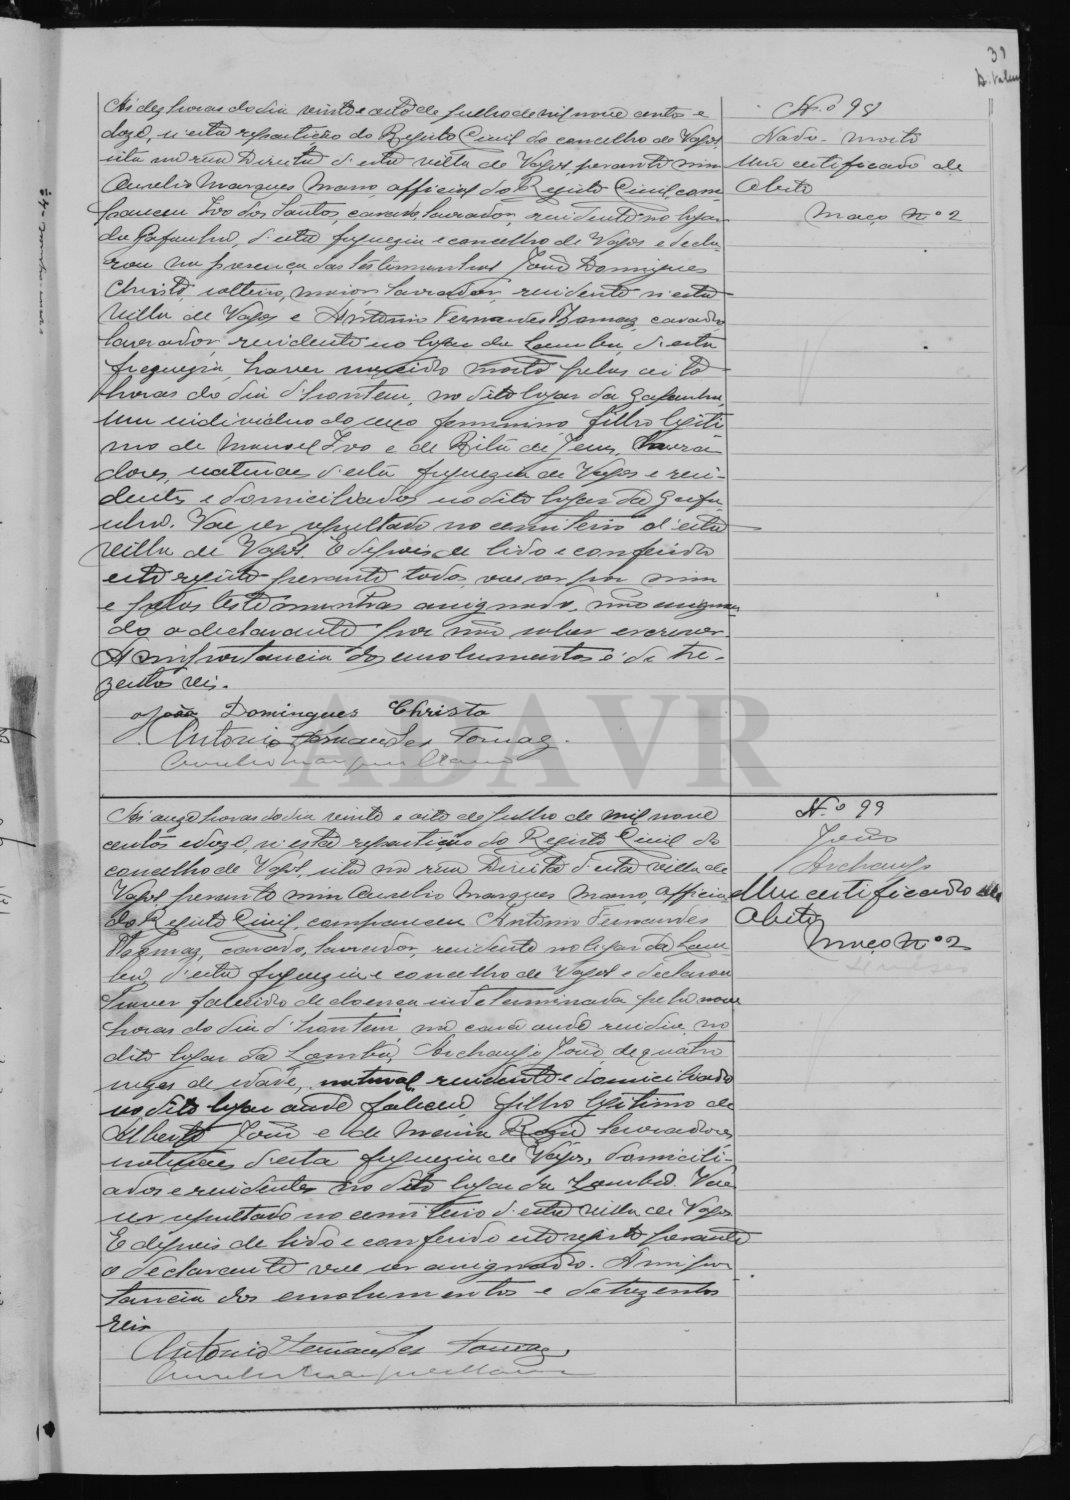 39
Ás dez horas do dia vinte e oito de Julho de mil nove centos e
doze, n'esta repartição do Registo Civil do concelho de Vagos
sita na rua Direita d'esta villa de Vagos, perante mim
Aurelio Marques Mano, official do Registo Civil, com-
pareceu Ivo dos Santos, casado, lavrador, residente no logar
da Gafanha, d'esta freguezia e concelho de Vagos e decla-
rou na presença das testemunhas João Domingues
Christo, solteiro, maior, lavrador, residente n'esta
villa de Vagos e Antonio Fernandes Thomaz, casado,
lavrador, residente no logar da Lomba, d'esta
freguezia, haver nascido morto pelas oito
horas do dia d'hontem, no dito logar da Gafanha,
um individuo do sexo feminino, filho legiti-
mo de Manoel Ivo e de Rita de Jesus, lavra-
dores, naturaes d'esta freguezia de Vagos e resi-
dentes e domiciliados no dito logar da Gafa-
nha. Vae ser sepultado no cemiterio d'esta
villa de Vagos. E depois de lido e conferido
este registo perante todos, vae ser por mim
e pelas testemunhas assignado, não assignan-
do o declarante por não saber escrever.
A importancia dos emolumentos é de tre-
zentos reis.
João Domingues Christo
Antonio Fernandes Tomaz.
Aurelio Marques Mano
Nº 98
Nado-morto
Um certificado de
obito
Maço Nº 2
ADAVR
Ás onze horas do dia vinte e oito de Julho de mil nove
centos e doze, n'esta repartição do Registo Civil do
concelho de Vagos, sita na rua Direita d'esta villa de
Vagos, perante mim Aurelio Marques Mano, official
do Registo Civil, compareceu Antonio Fernandes
Thomaz, casado, lavrador, residente no logar da Lom-
ba, d'esta freguezia e concelho de Vagos e declarou
haver falecido de doença indeterminada pelas nove
horas do dia d'hontem, na casa onde residia no
dito logar da Lomba, Archanjo João, de quatro
mezes de idade, natural, residente e domiciliado
no dito logar onde faleceu, filho legitimo de
Alberto João e de Maria Rosa lavradores
naturaes d'esta freguezia de Vagos, domicili-
ados e residentes no dito logar da Lomba. Vae
ser sepultado no cemiterio d'esta villa de Vagos
E depois de lido e conferido este registo perante
o declarante vae ser assignado. A impor-
tancia dos emolumentos é de trezentos
reis
Antonio Fernandes Tomaz
Aurelio Marques Mano
Nº 99
João
Archanjo
Um certificado de
obito
Maço Nº 2